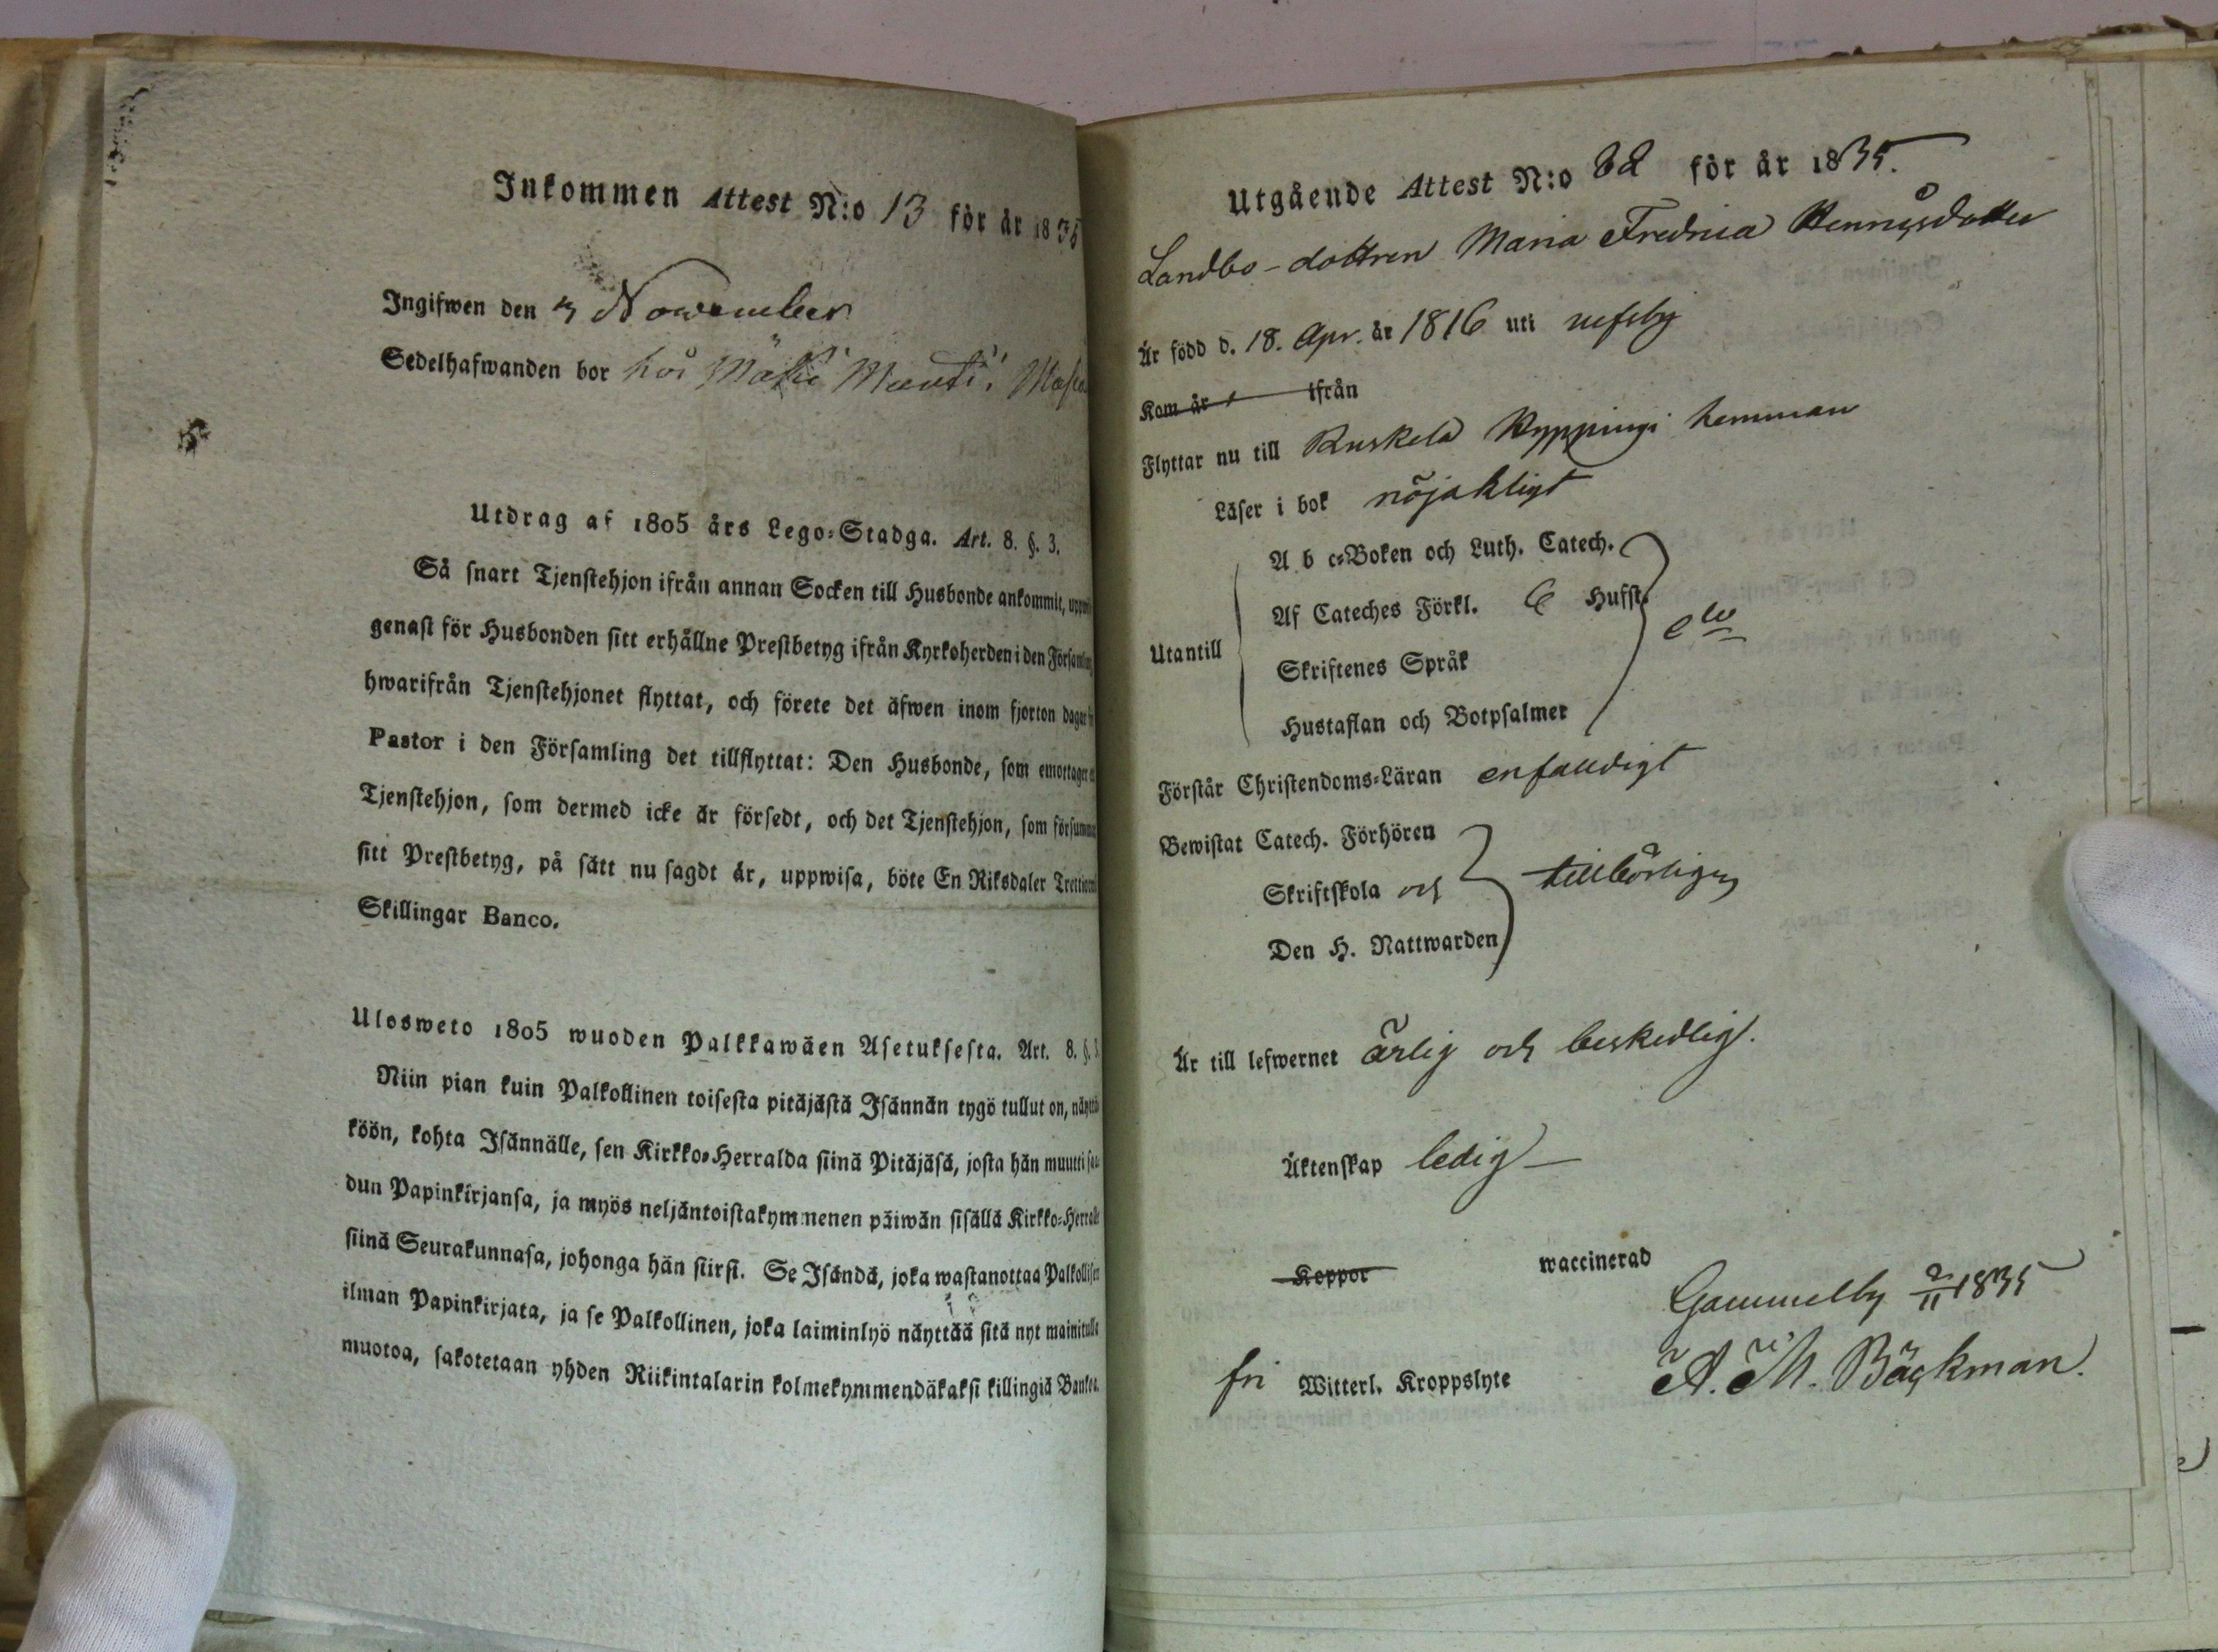 Inkommen Attest N:o 13 för år 1835
Ingifwen den 3 November
Sedelhafwanden bor hos
Utdrag af 1805 års Lego-Stadga. Art. 8. §. 3.
Så snart Tjenstehjon ifrån annan Socken till Husbonde ankommit,
genast för Husbonden sitt erhållne Prestbetyg ifrån Kyrkoherden i den Församling
hwarifrån Tjenstehjonet flyttat, och förete det äfwen inom fjorton dagar
Pastor i den Församling det tillflyttat: Den Husbonde, som emottager
Tjenstehjon, som dermed icke är försedt, och det Tjenstehjon, som
sitt Prestbetyg, på sätt nu sagdt är, uppwisa, böte En Riksdaler
Skillingar Banco.
Ulosweto 1805 wuoden Palkkawäen Asetuksesta. Art. 8. §. 3.
Niin pian kuin Palkollinen toisesta pitäjästä Isännän tygö tullut on, näyttä-
köön, kohta Isännälle, sen Kirkko-Herralda siinä Pitäjäsä, josta hän muutti saa-
dun Papinkirjansa, ja myös neljäntoistakymmenen päiwän sisällä Kirkko-Herralle
siinä Seurakunnasa, johonga hän siirsi. Se Isändä, joka wastanottaa Palkollisen
ilman Papinkirjata, ja se Palkollinen, joka laiminlyö näyttää sitä nyt mainitulla
muotoa, sakotetaan yhden Riikintalarin kolmekymmendäkaksi killingiä Bankos.
Utgående Attest N:o 82 för år 1835.
Landbo-dottren Maria Fredrica
Är född d. 18. Apr. år 1816 uti
Kom år 1 ifrån
Flyttar nu till Ruskela hemman
Läser i bok nöjaktligt
A b c-Boken och Luth. Catech.
Af Cateches Förkl. 6 Hufst.
Utantill
Skriftenes Språk
Hustaflan och Botpsalmer
Förstår Christendoms-Läran enfaldigt
Bewistat Catech. Förhören
Skriftskola och tillbörligen
Den H. Nattwarden
Är till lefwernet ärlig och beskedlig.
Äktenskap ledig
Koppor waccinerad
Gammelby 2/11 1835
fri Witterl. Kroppslyte A. M. Bäckman.